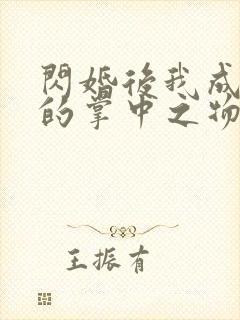 閃婚後我成
的掌中之物
王振有